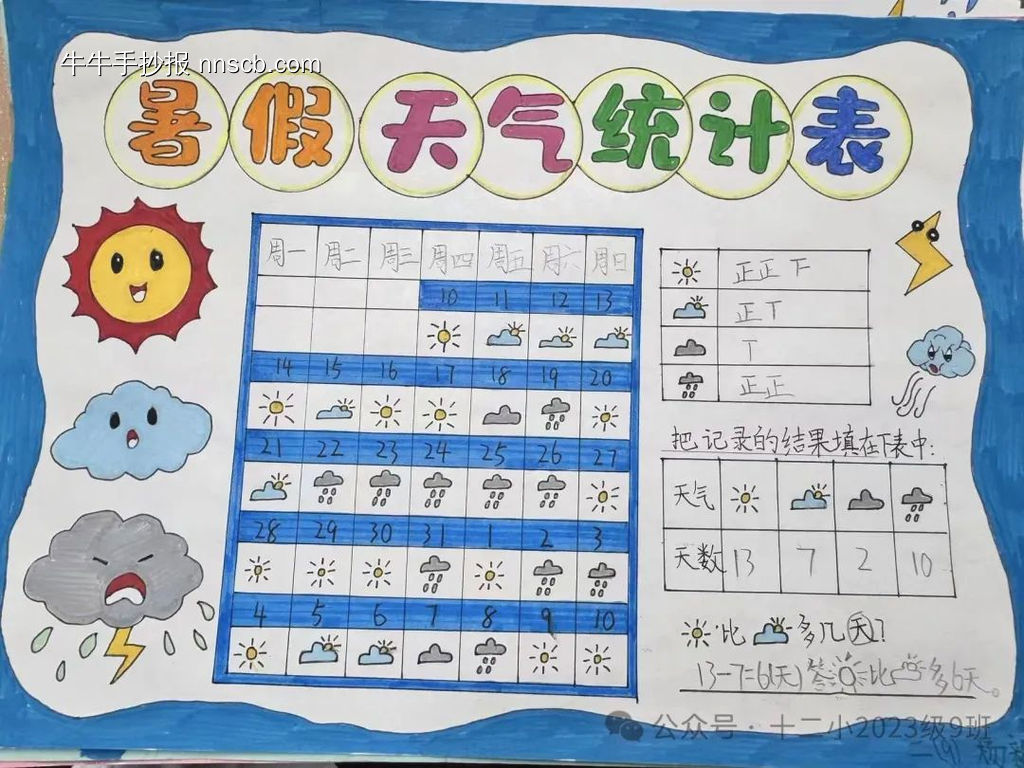 牛牛手抄报 nnscb.com
暑假天气统计表
周一 周二 周三 周四 周五 周六 周日
10 11 12 13
14 15 16 17 18 19 20
21 22 23 24 25 26 27
28 29 30 31 1 2 3
4 5 6 7 8 9 10
正正下
正丅
丅
正正
把记录的结果填在下表中:
天气
天数 13 7 2 10
比 多几天?
13-7=6(天) 答: 比 多6天。
公众号·十二小2023级9班
二(9)